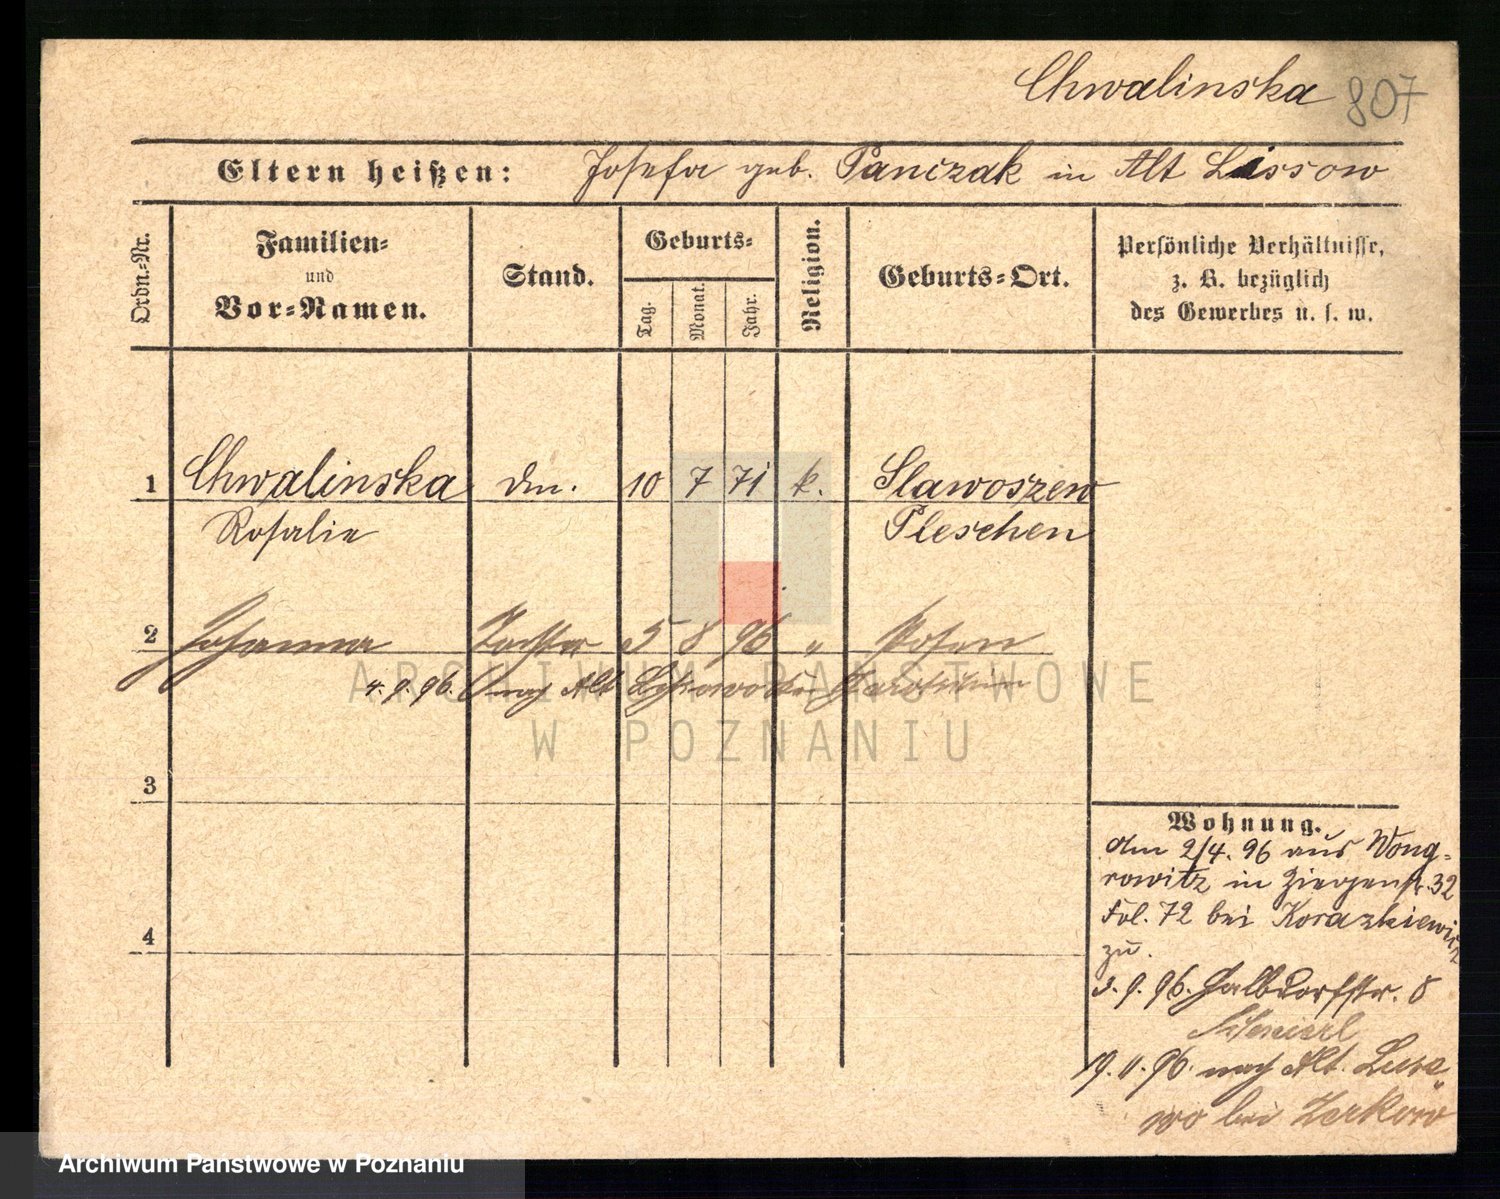 Chwalinska 807
Eltern heißen: Josefa geb. Panczak in Alt Lissow
Ordn.-Nr.
Familien-
und
Vor-Namen.
Stand.
Geburts-
Tag.
Monat.
Jahr.
Religion.
Geburts-Ort.
Persönliche Verhältnisse,
z. B. bezüglich
des Gewerbes u. s. w.
1 Chwalinska Dm. 10 7 71 k. Slawoszew
Rosalie Pleschen
2 Johanna Tochter 5 8 96 " Posen
4.9.96. nach Alt
3
4
Wohnung.
Am 2/4. 96 aus Wong-
rowitz in Ziegenstr. 32
Fol. 72 bei Korazkiewicz
zu.
3.9.96. Halbdorfstr. 8
19.11.96. nach Alt. Lussa
wo bei Zerkow
ARCHIWUM PAŃSTWOWE
W POZNANIU
Archiwum Państwowe w Poznaniu